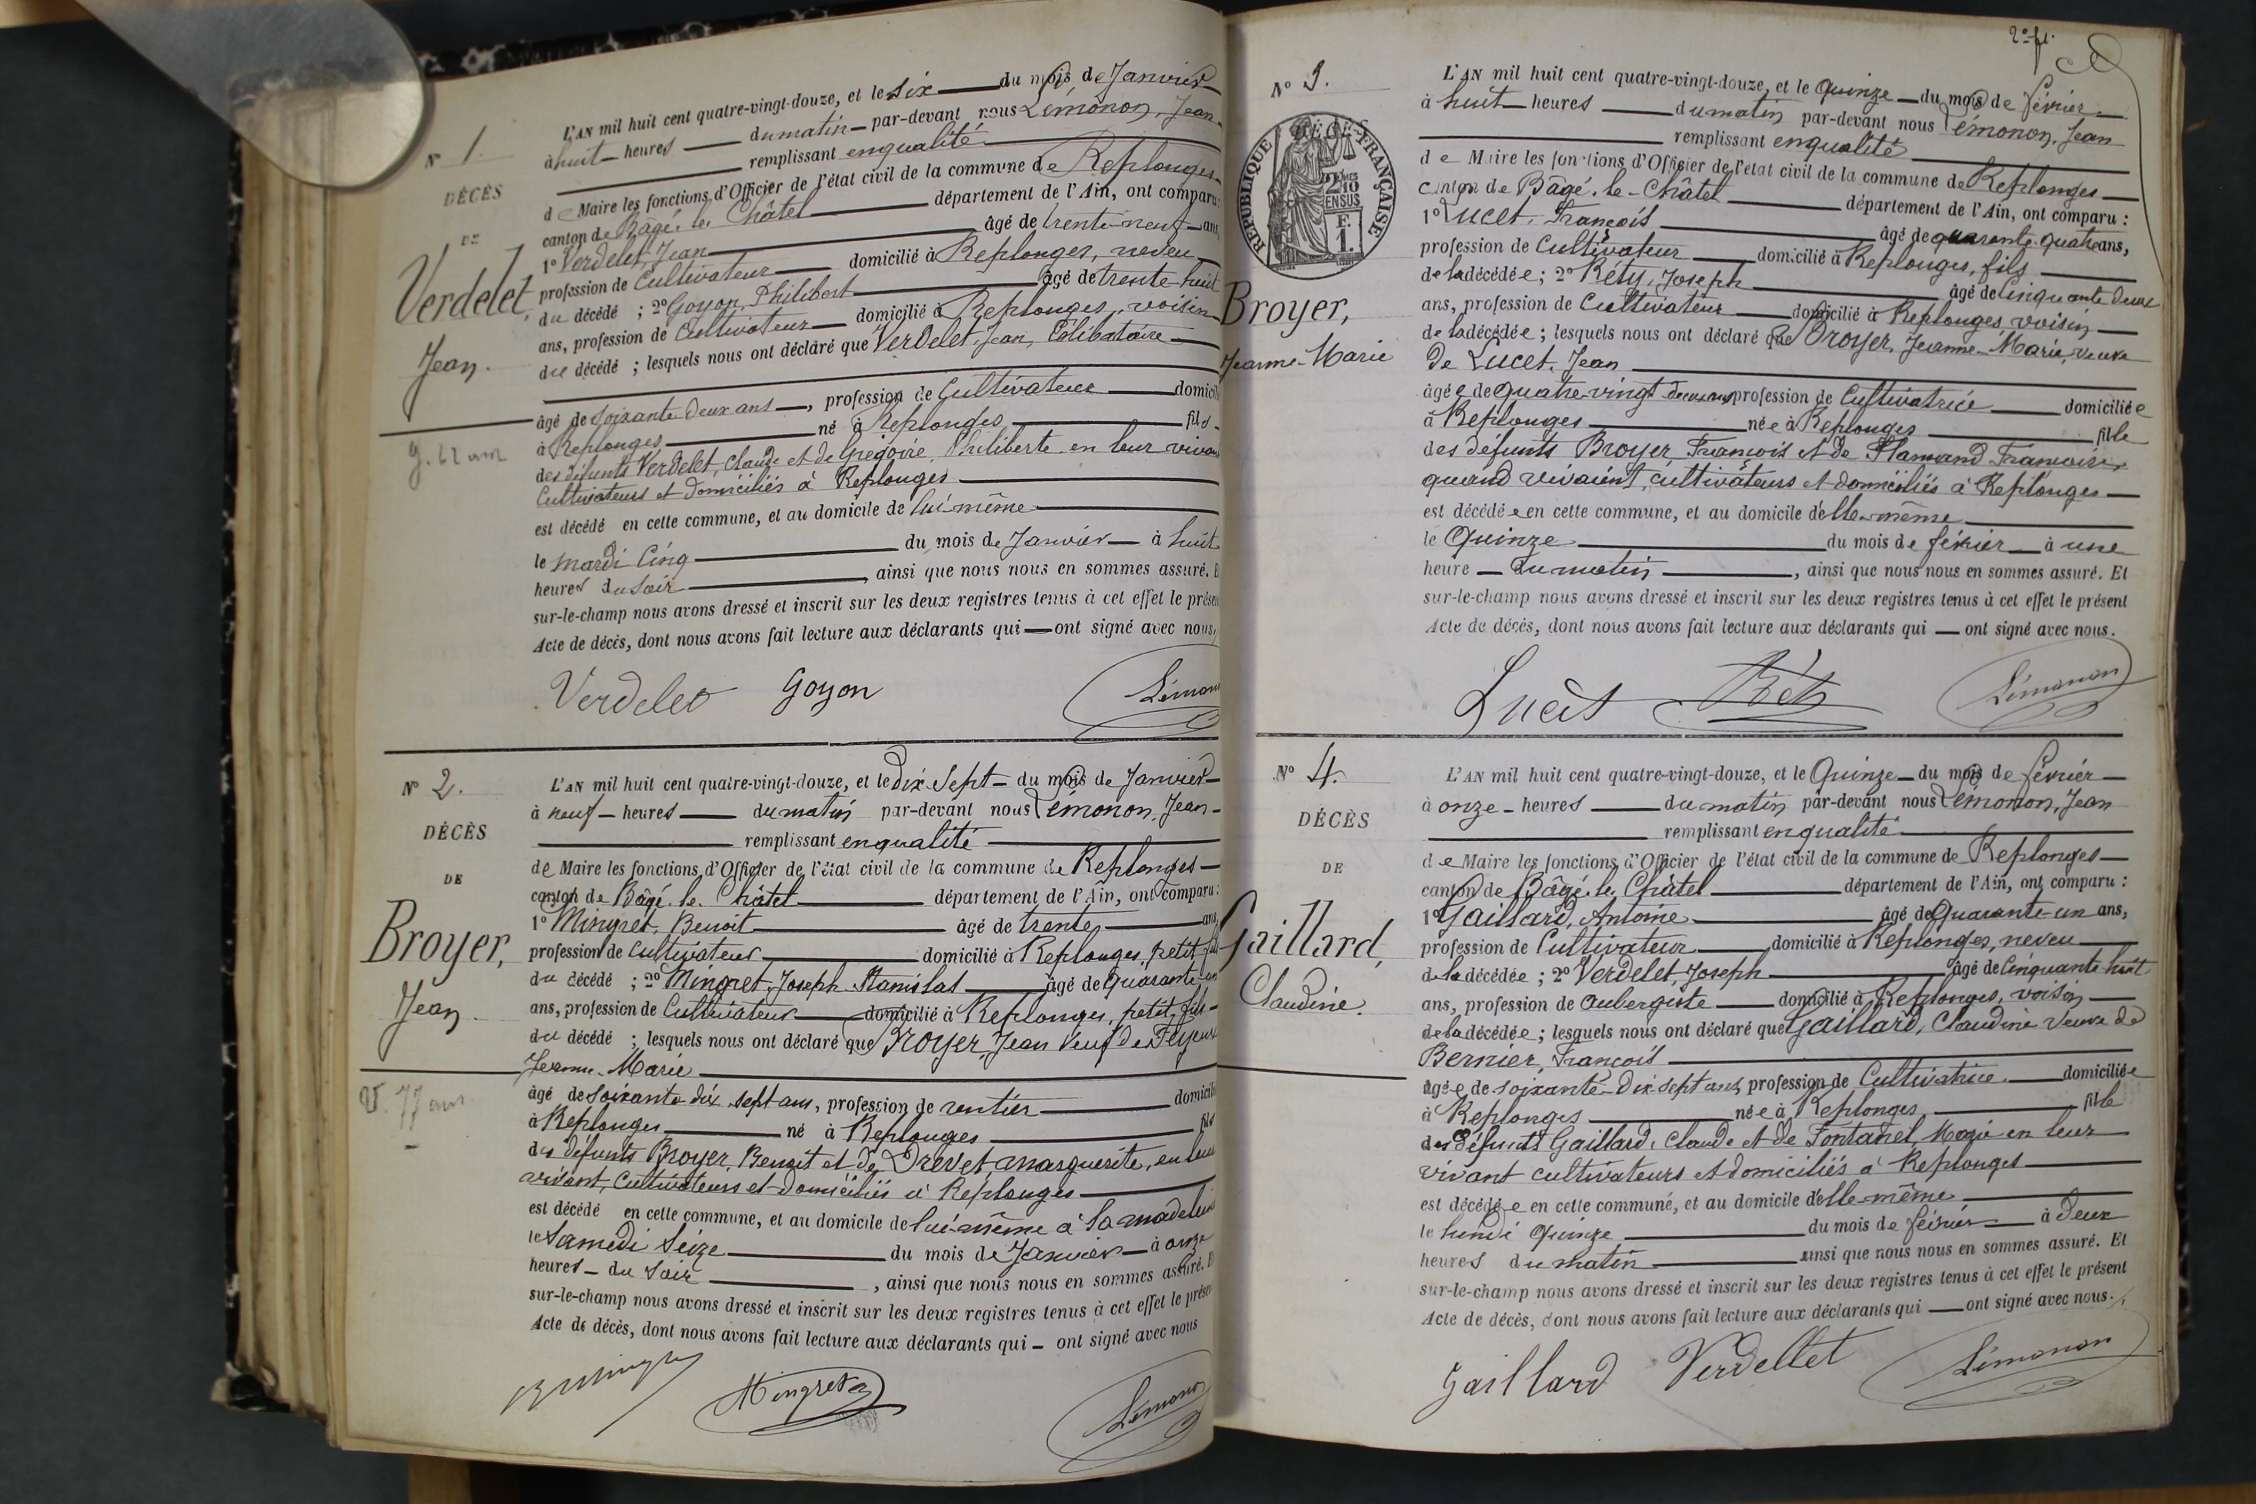 N° 1.
DÉCÈS
DE
Verdelet,
Jean.
g. 62 ans
L'AN mil huit cent quatre-vingt-douze, et le six du mois de Janvier
à huit heures du matin par-devant nous Lémonon, Jean
remplissant en qualité
de Maire les fonctions d'Officier de l'état civil de la commune de Replonges
canton de Bâgé-le-Châtel département de l'Ain, ont comparu :
1° Verdelet, Jean âgé de trente-neuf ans
profession de Cultivateur domicilié à Replonges, neveu
du décédé ; 2° Goyon, Philibert âgé de trente-huit
ans, profession de Cultivateur domicilié à Replonges, voisin
du décédé ; lesquels nous ont déclaré que Verdelet, Jean, Célibataire
âgé de soixante deux ans, profession de Cultivateur domicilié
à Replonges né à Replonges fils
des défunts Verdelet, Claude et de Grégoire, Philiberte en leur vivant
Cultivateurs et domiciliés à Replonges
est décédé en cette commune, et au domicile de lui-même
le mardi Cinq du mois de Janvier à huit
heures du soir, ainsi que nous nous en sommes assuré. Et
sur-le-champ nous avons dressé et inscrit sur les deux registres tenus à cet effet le présent
Acte de décès, dont nous avons fait lecture aux déclarants qui ont signé avec nous,
Verdelet Goyon Lémonon
N° 2.
DÉCÈS
DE
Broyer,
Jean
V. 77 ans
L'AN mil huit cent quatre-vingt-douze, et le dix sept du mois de Janvier
à neuf heures du matin par-devant nous Lémonon, Jean
remplissant en qualité
de Maire les fonctions d'Officier de l'état civil de la commune de Replonges
canton de Bâgé-le-Châtel département de l'Ain, ont comparu :
1° Mingret, Benoit âgé de trente ans,
profession de Cultivateur domicilié à Replonges, petit fils
du décédé ; 2° Mingret, Joseph Stanislas âgé de quarante un
ans, profession de Cultivateur domicilié à Replonges, petit fils
du décédé ; lesquels nous ont déclaré que Broyer, Jean veuf de
Jeanne-Marie
âgé de soixante dix sept ans, profession de rentier domicilié
à Replonges né à Replonges fils
des défunts Broyer, Benoit et de Drevet Marguerite, en leur
vivant, Cultivateurs et domiciliés à Replonges
est décédé en cette commune, et au domicile de lui-même à la Madeleine
le Samedi Seize du mois de Janvier à onze
heures du soir, ainsi que nous nous en sommes assuré. Et
sur-le-champ nous avons dressé et inscrit sur les deux registres tenus à cet effet le présent
Acte de décès, dont nous avons fait lecture aux déclarants qui ont signé avec nous
B Mingret Mingret Lémonon
2e ft.
N° 3.
RÉPUBLIQUE FRANÇAISE
2/10 EN SUS
F.
1.
Broyer,
Jeanne-Marie
L'AN mil huit cent quatre-vingt-douze, et le Quinze du mois de février
à huit heures du matin par-devant nous Lémonon, Jean
remplissant en qualité
de Maire les fonctions d'Officier de l'état civil de la commune de Replonges
canton de Bâgé-le-Châtel département de l'Ain, ont comparu :
1° Lucet, François âgé de quarante-quatre ans,
profession de Cultivateur domicilié à Replonges, fils
de la décédée ; 2° Réty, Joseph âgé de Cinquante deux
ans, profession de Cultivateur domicilié à Replonges, voisin
de la décédée ; lesquels nous ont déclaré que Broyer, Jeanne-Marie, veuve
De Lucet, Jean
âgée de quatre-vingt deux ans profession de Cultivatrice domiciliée
à Replonges née à Replonges fille
des défunts Broyer François et de Flamand Françoise,
quand vivaient, cultivateurs et domiciliés à Replonges
est décédée en cette commune, et au domicile d'elle-même
le Quinze du mois de février à une
heure du matin, ainsi que nous nous en sommes assuré. Et
sur-le-champ nous avons dressé et inscrit sur les deux registres tenus à cet effet le présent
Acte de décès, dont nous avons fait lecture aux déclarants qui ont signé avec nous.
Lucet Réty Lémonon
N° 4.
DÉCÈS
DE
Gaillard,
Claudine.
L'AN mil huit cent quatre-vingt-douze, et le Quinze du mois de février
à onze heures du matin par-devant nous Lémonon, Jean
remplissant en qualité
de Maire les fonctions d'Officier de l'état civil de la commune de Replonges
canton de Bâgé-le-Châtel département de l'Ain, ont comparu :
1° Gaillard, Antoine âgé de Quarante-un ans,
profession de Cultivateur domicilié à Replonges, neveu
de la décédée ; 2° Verdelet, Joseph âgé de Cinquante huit
ans, profession de aubergiste domicilié à Replonges, voisin
de la décédée ; lesquels nous ont déclaré que Gaillard, Claudine veuve de
Bernier, François
âgée de soixante-dix sept ans, profession de Cultivatrice domiciliée
à Replonges née à Replonges fille
des défunts Gaillard, Claude et de Fontanel, Marie en leur
vivant cultivateurs et domiciliés à Replonges
est décédée en cette commune, et au domicile d'elle-même
le lundi Quinze du mois de février à Deux
heures du matin ainsi que nous nous en sommes assuré. Et
sur-le-champ nous avons dressé et inscrit sur les deux registres tenus à cet effet le présent
Acte de décès, dont nous avons fait lecture aux déclarants qui ont signé avec nous.
Gaillard Verdellet Lémonon